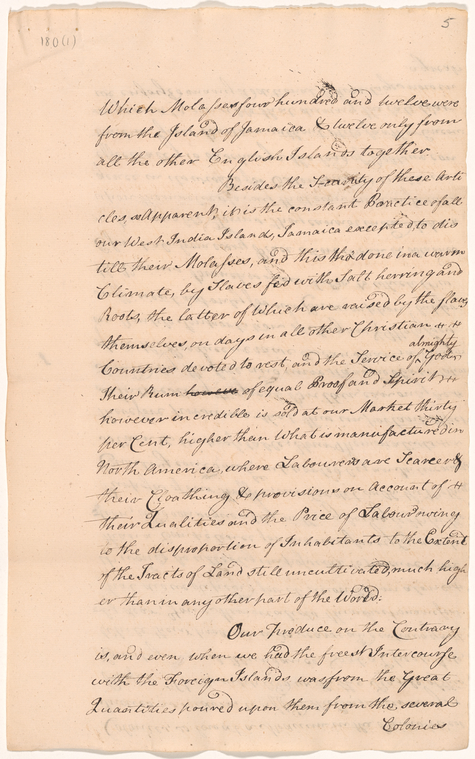 5
180(1)
Which Molasses four hundred and twelve were
from the Island of Jamaica & twelve only from
all the other English Islands together
Besides the Scarcity of these Arti
cles, so Apparent, it is the constant Practice of all
our West India Islands, Jamaica excepted, to dis
till their Molasses, and this tho' done in a warm
Climate, by Slaves fed with Salt herring and
Roots, the latter of Which are raised by the slaves
themselves, on days in all other Christian
almighty
Countries devoted to rest, and the Service of God
Their Rum of equal Proof and Spirit
however incredible is sold at our Market thirty
per Cent, higher than What is manufactured in
North America, where Labourers are Scarcer &
their Cloathing & provisions on account of
their Qualities and the Price of Labour owing
to the disproportion of Inhabitants to the Extent
of the Tracts of Land still uncultivated, much high
er than in any other part of the World:
Our Produce on the Contrary
is, and even when we had the freest Intercourse
with the Foreign Islands was from the Great
Quantities poured upon them from the several
Colonies